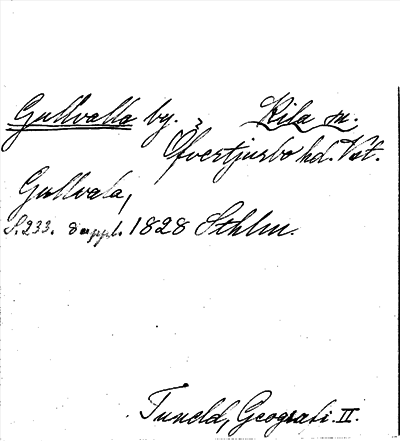 Gullvalla by. Kila sn.
Övertjurbo hd. Vst.
Gullvala,
S. 233. 8 uppl. 1828 Sthlm.
Tuneld, Geografi. II.